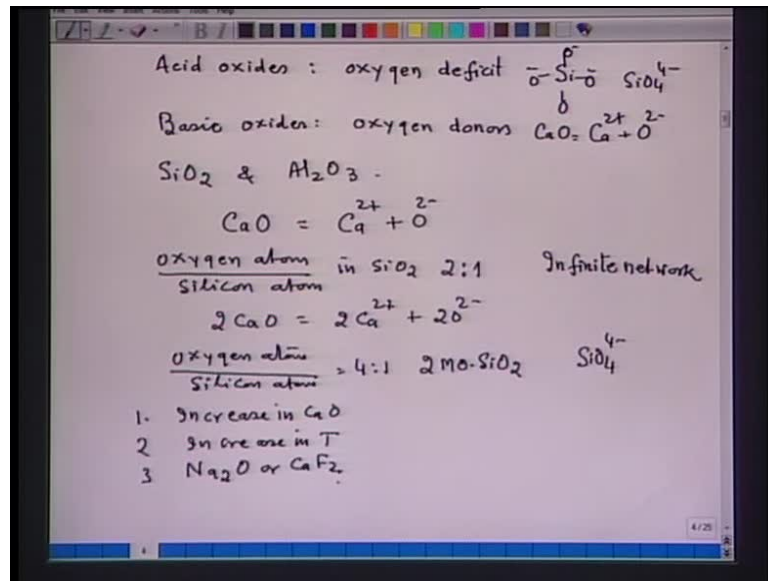 Acid oxides : oxygen deficit O⁻ ⁻O-Si-O⁻ O SiO₄⁴⁻
Basic oxides: oxygen donors CaO = Ca²⁺ + O²⁻
SiO₂ & Al₂O₃ .
CaO = Ca²⁺ + O²⁻
oxygen atom / silicon atom in SiO₂ 2:1 Infinite network
2 CaO = 2 Ca²⁺ + 2O²⁻
oxygen atom / silicon atom = 4:1 2MO·SiO₂ SiO₄⁴⁻
1. Increase in CaO
2 Increase in T
3 Na₂O or CaF₂.
4/25